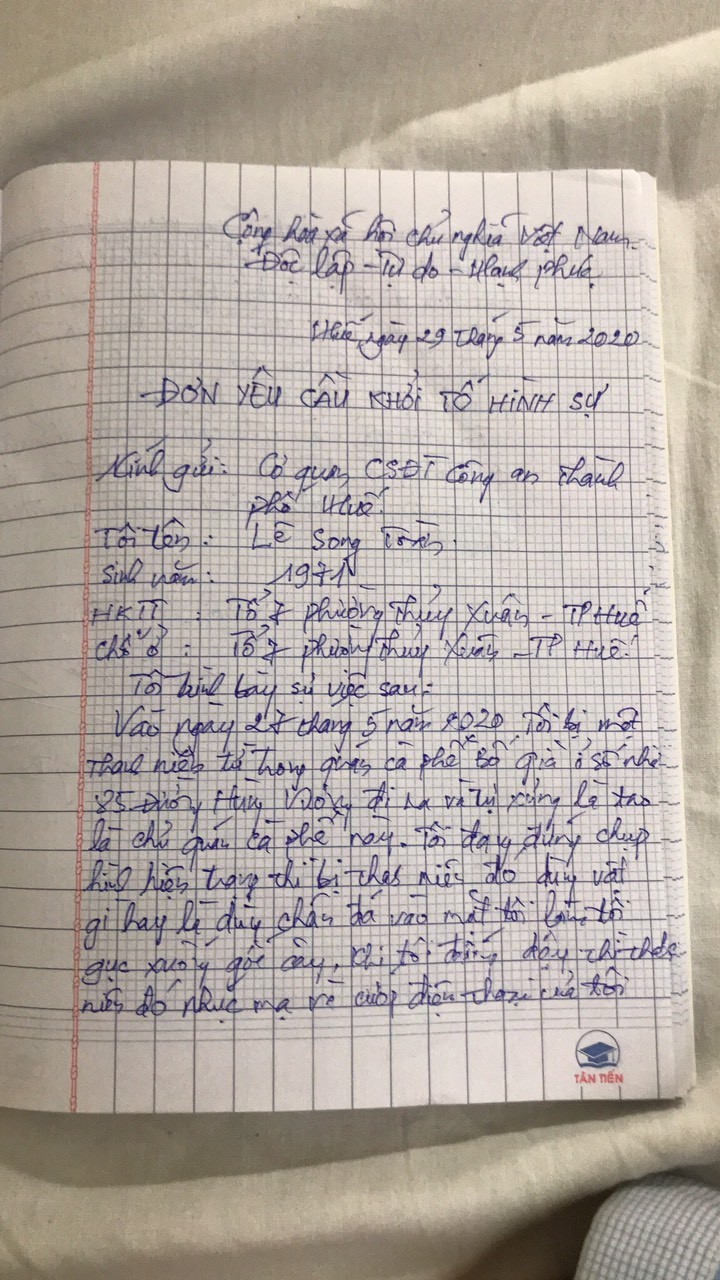 Cộng hòa xã hội chủ nghĩa Việt Nam
Độc lập - Tự do - Hạnh phúc
Huế, ngày 29 tháng 5 năm 2020
ĐƠN YÊU CẦU KHỞI TỐ HÌNH SỰ
Kính gửi: Cơ quan CSĐT Công an thành
phố Huế.
Tôi tên: Lê Song
Sinh năm: 1971
HKTT: Tổ 7 phường Thủy Xuân - TP Huế
Chỗ ở: Tổ 7 phường Thủy Xuân - TP Huế.
Tôi trình bày sự việc sau:
Vào ngày 27 tháng 5 năm 2020, Tôi bị một
thanh niên từ trong quán cà phê Bố già ở số nhà
85 Đường đi ra và tự xưng là tao
là chủ quán cà phê này. Tôi đang đứng chụp
hình hiện trạng thì bị thanh niên đó dùng vật
gì hay là dùng chân đá vào mặt tôi làm tôi
gục xuống gốc cây, khi tôi đứng dậy thì thanh
niên đó nhục mạ và cướp điện thoại của tôi
TÂN TIẾN